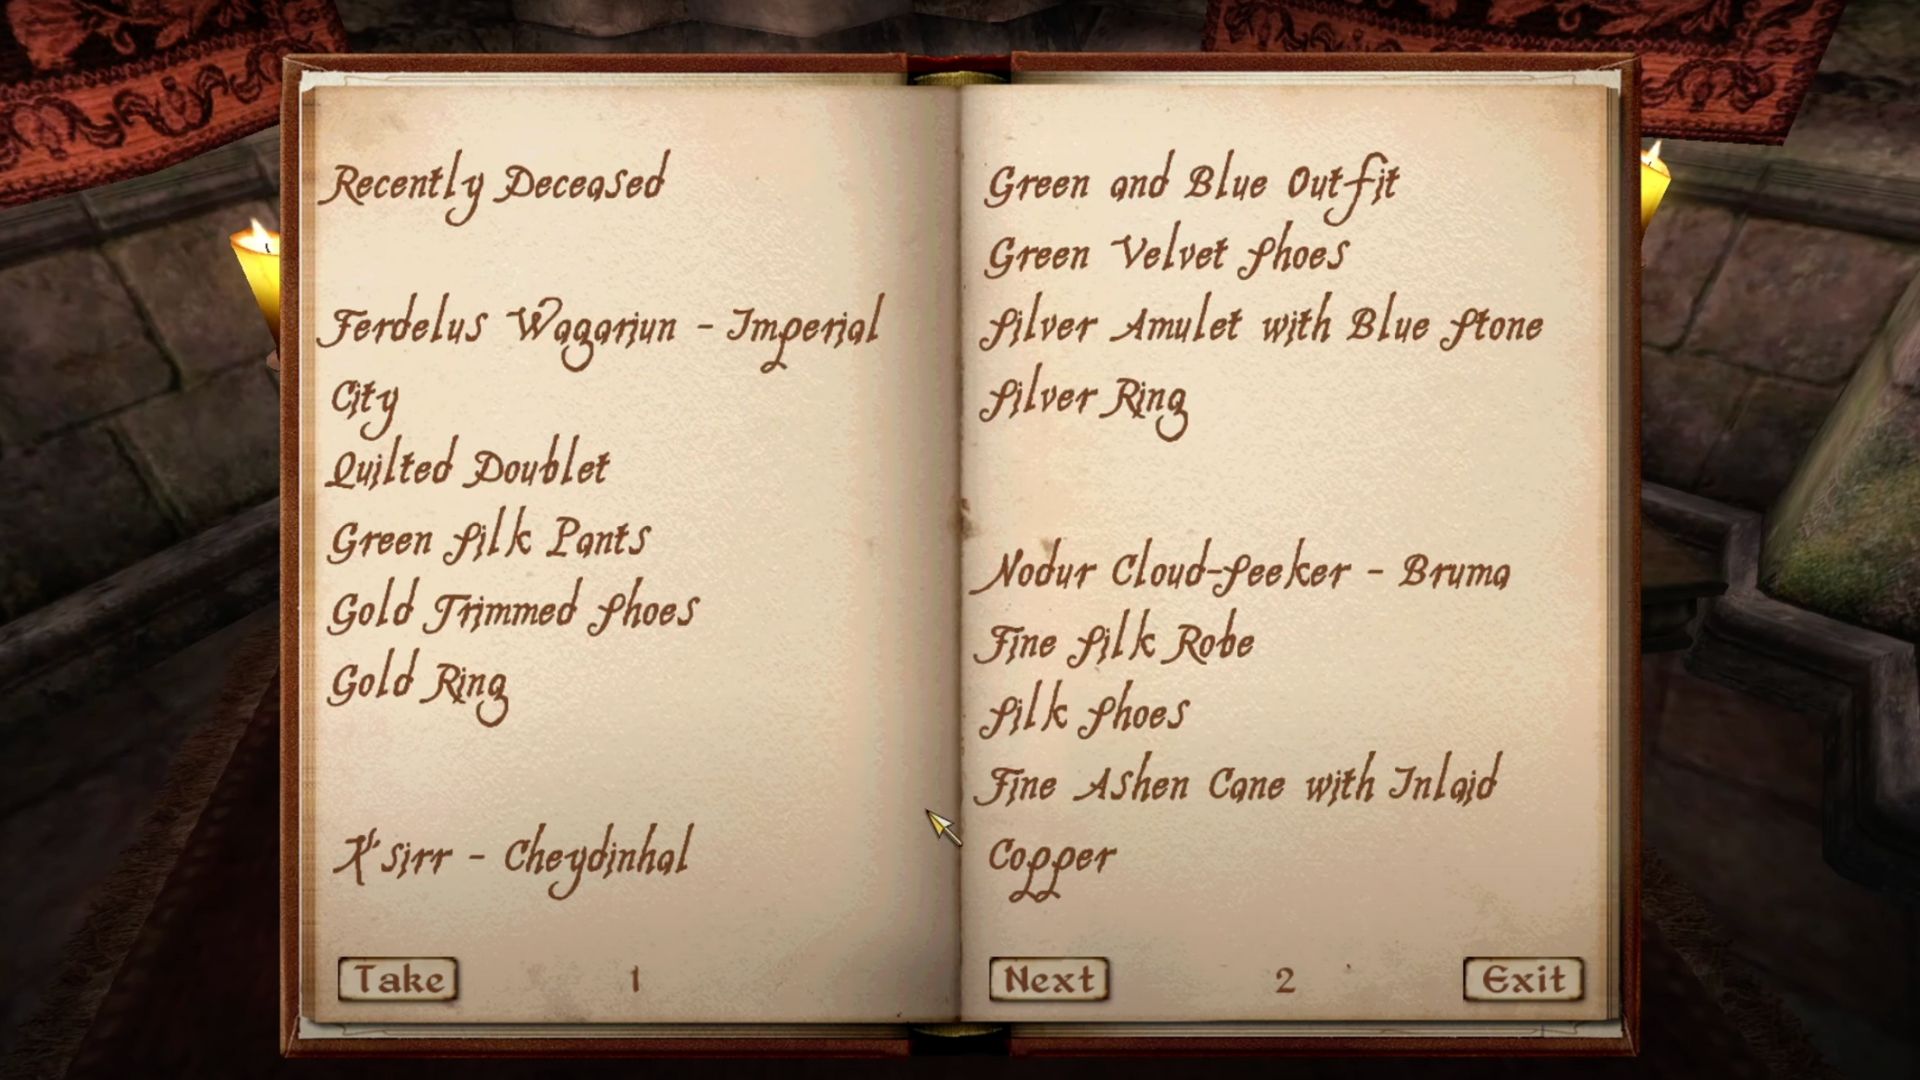 Recently Deceased
Ferdelus Wagariun - Imperial
City
Quilted Doublet
Green Silk Pants
Gold Trimmed Shoes
Gold Ring
K'sirr - Cheydinhal
Take
1
Green and Blue Outfit
Green Velvet Shoes
Silver Amulet with Blue Stone
Silver Ring
Nodur Cloud-Seeker - Bruma
Fine Silk Robe
Silk Shoes
Fine Ashen Cane with Inlaid
Copper
Next
2
Exit